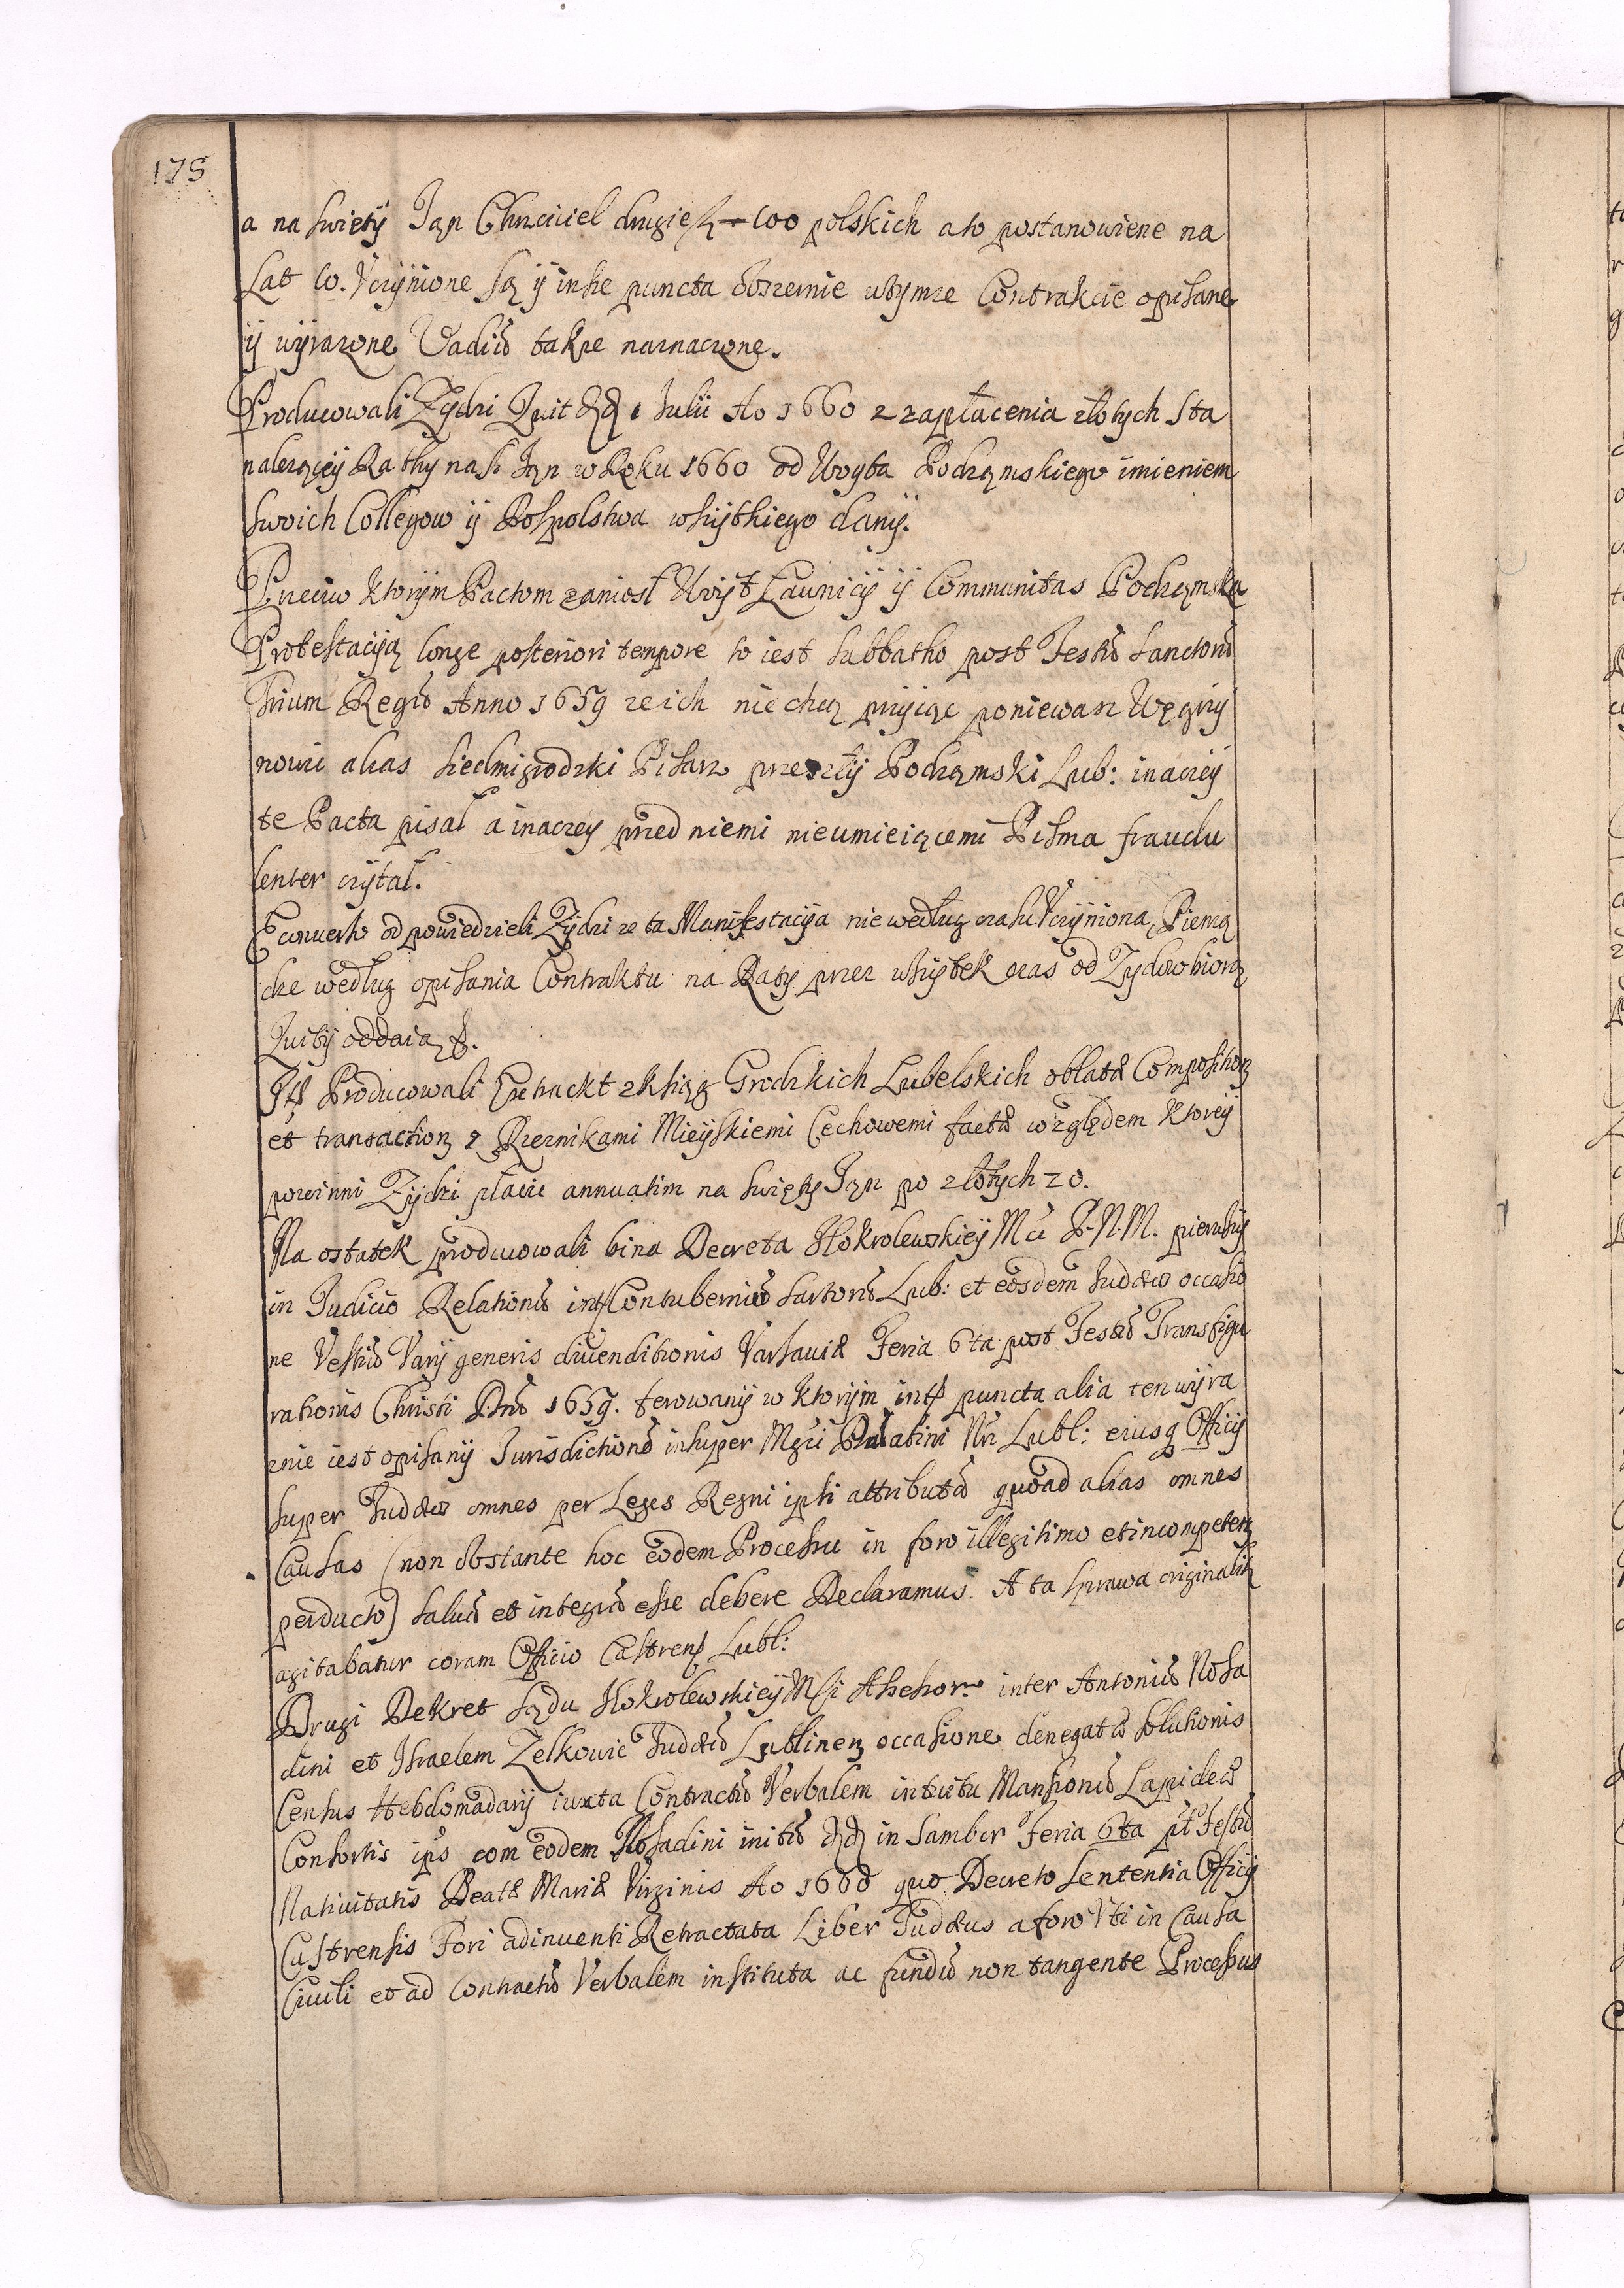 178
a na swiety Jąn Chrzciciel drugie 100 polskich a to postanowiene na
Lat 10. Vczynione są ÿ insze puncta obszernie wtymze Contrakcie opisane
ÿ wÿrazone Vadiū takze naznaczone.
Producowali Zÿdzi Quit 1 Julii Ao 1660 z zapłacenia złotych sta
nalezącÿ Rathy na S. Jąn w Roku 1660 od Woyta Podząmskiego imieniem
swoich Collegow ÿ Pospolstwa wszÿtkiego danÿ.
Przeciw ktorÿm Pactom zaniosł Woÿt Ławnicÿ ÿ Communitas Podząmska
Protestacÿą longe posteriori tempore to iest sabbatho post Festū Sanctorū
Trium Regū Anno 1659 ze ich nie chcą przÿiąc poniewasz Węgrzÿ
nowic alias siedmigrodzki Pisarz przeszłÿ Podząmski Lub: inaczeÿ
te Pacta pisał a inaczey przed niemi nieumieiącemi Pisma fraudu
lenter czÿtał.
E conuerso odpowiedzieli Zÿdzi ze ta Manifestacÿa nie według czasu Vczÿniona, Pienią
dze według opisania Contraktu na Raty przez wszÿtek czas od Zydow biorą
Quitÿ oddaią
Producowali Extrackt z ksiąg Grodzkich Lubelskich oblatæ Composition
et transaction z Rzeznikami Mieÿskiemi Cechowemi factæ względem ktoreÿ
powinni Zÿdzi płacic annuatim na swięty Jąn po złotych 20.
Na ostatek producowali bina Decreta JKo krolewskieÿ Mci P. N. M. pierwszÿ
in Judicio Relationū int Contuberniū Sartorū Lub: et eosdem Judæos occasio
ne Vestiū Varij generis diuenditionis Varsauiæ Feria 6ta post Festū Transfigu
rationis Christi Dnī 1659. ferowanÿ w ktorÿm int puncta alia ten wÿra
znie iest opisanÿ Jurisdictionē insuper Mgci Palatini Nri Lubl: eiusq Officij
super Judæos omnes per Leges Regni ipsi attributā quoad alias omnes
Causas (non obstante hoc eodem Processu in foro illegitimo et incompeten
perducto) saluā et integrā esse debere Declaramus. A ta sprawa originalit
agitabatur coram Officio Castren Lubl:
Drugi Dekret Sądu JKo krolewskieÿ Msci Assessor inter Antoniū Nosa
dini et Israelem Zelkowic Judæū Lublinen occasione denegatæ solutionis
Census Hebdomadarij iuxta Contractū Verbalem intuitu Mansionis Lapideæ
Consortis ips cum eodem Nosadini initū in Sambor Feria 6ta pt Festū
Natiuitatis Beatæ Mariæ Virginis Ao 1660 quo Decreto Sententia Officij
Castrensis Fori adinuenti Retractata Liber Judæus a foro Vti in Causa
Ciuili et ad Contractū Verbalem instituta ac fundū non tangente Processus